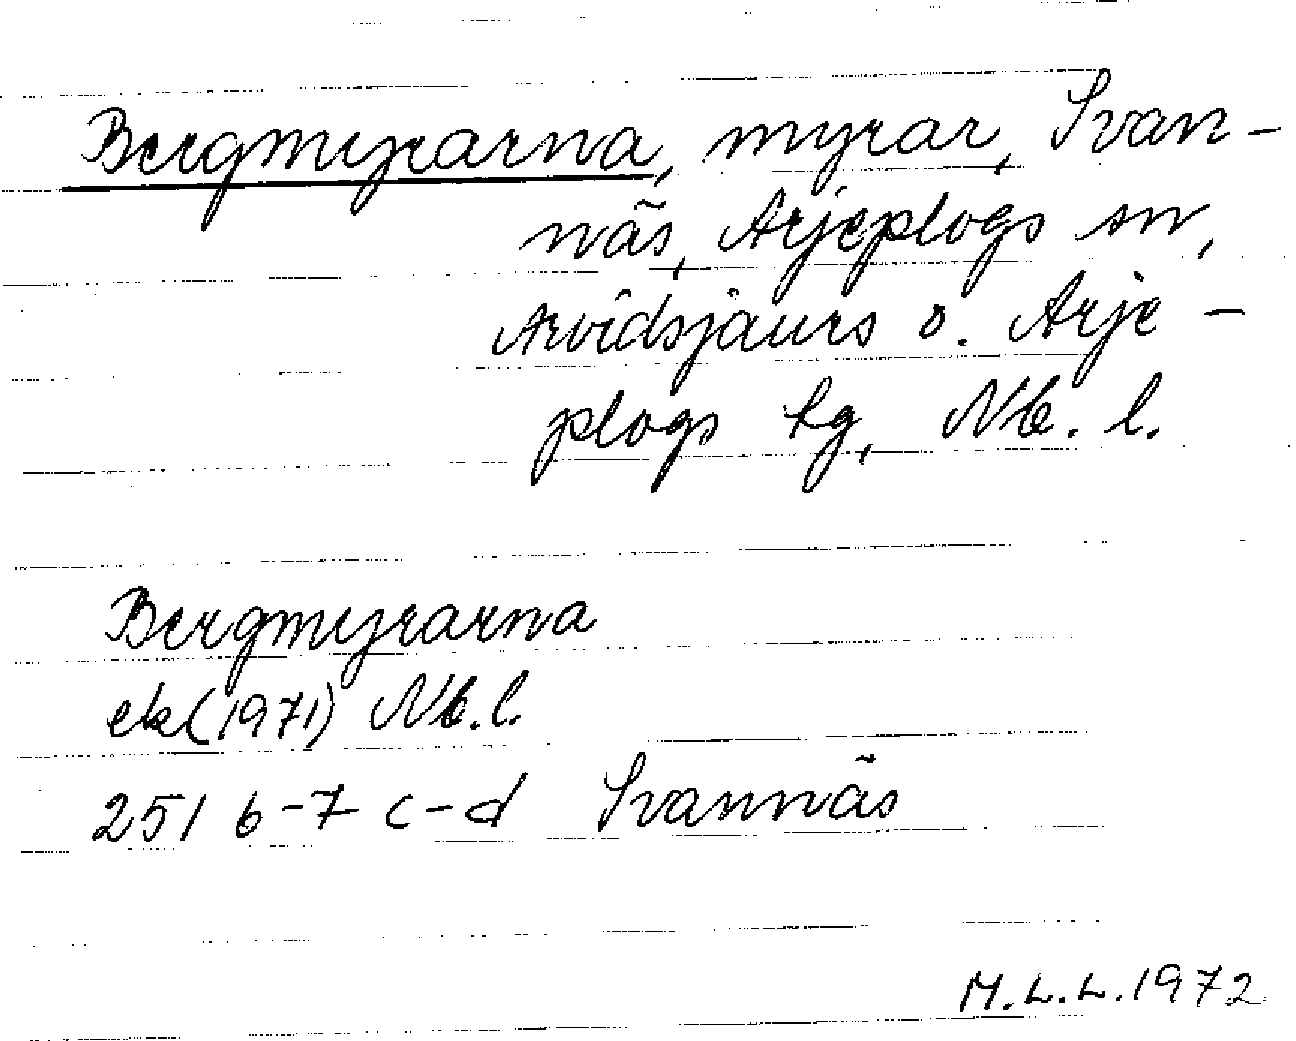 Bergmyrarna, myrar, Svan-
näs, Arjeplogs sn,
Arvidsjaurs o. Arje-
plogs tg, Nb. l.
Bergmyrarna
ek (1971) Nb. l.
251 6-7 c-d Svannäs
M.L.L. 1972